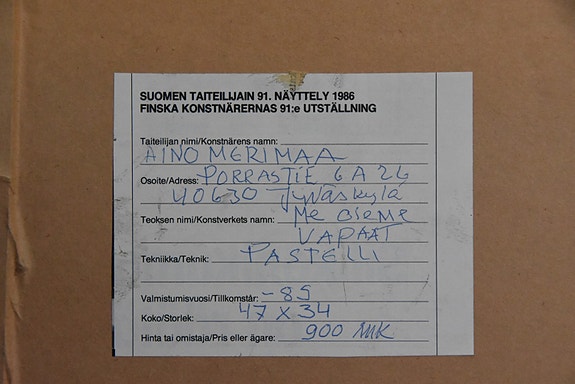 SUOMEN TAITEILIJAIN 91. NÄYTTELY 1986
FINSKA KONSTNÄRERNAS 91:e UTSTÄLLNING
Taiteilijan nimi/Konstnärens namn:
AINO MERIMAA
Osoite/Adress: PORRASTIE 6 A 26
40630 Jyväskylä
Teoksen nimi/Konstverkets namn: Me olemme
VAPAAT
Tekniikka/Teknik: PASTELLI
Valmistumisvuosi/Tillkomstår: -85
Koko/Storlek: 47 x 34
Hinta tai omistaja/Pris eller ägare: 900 mk